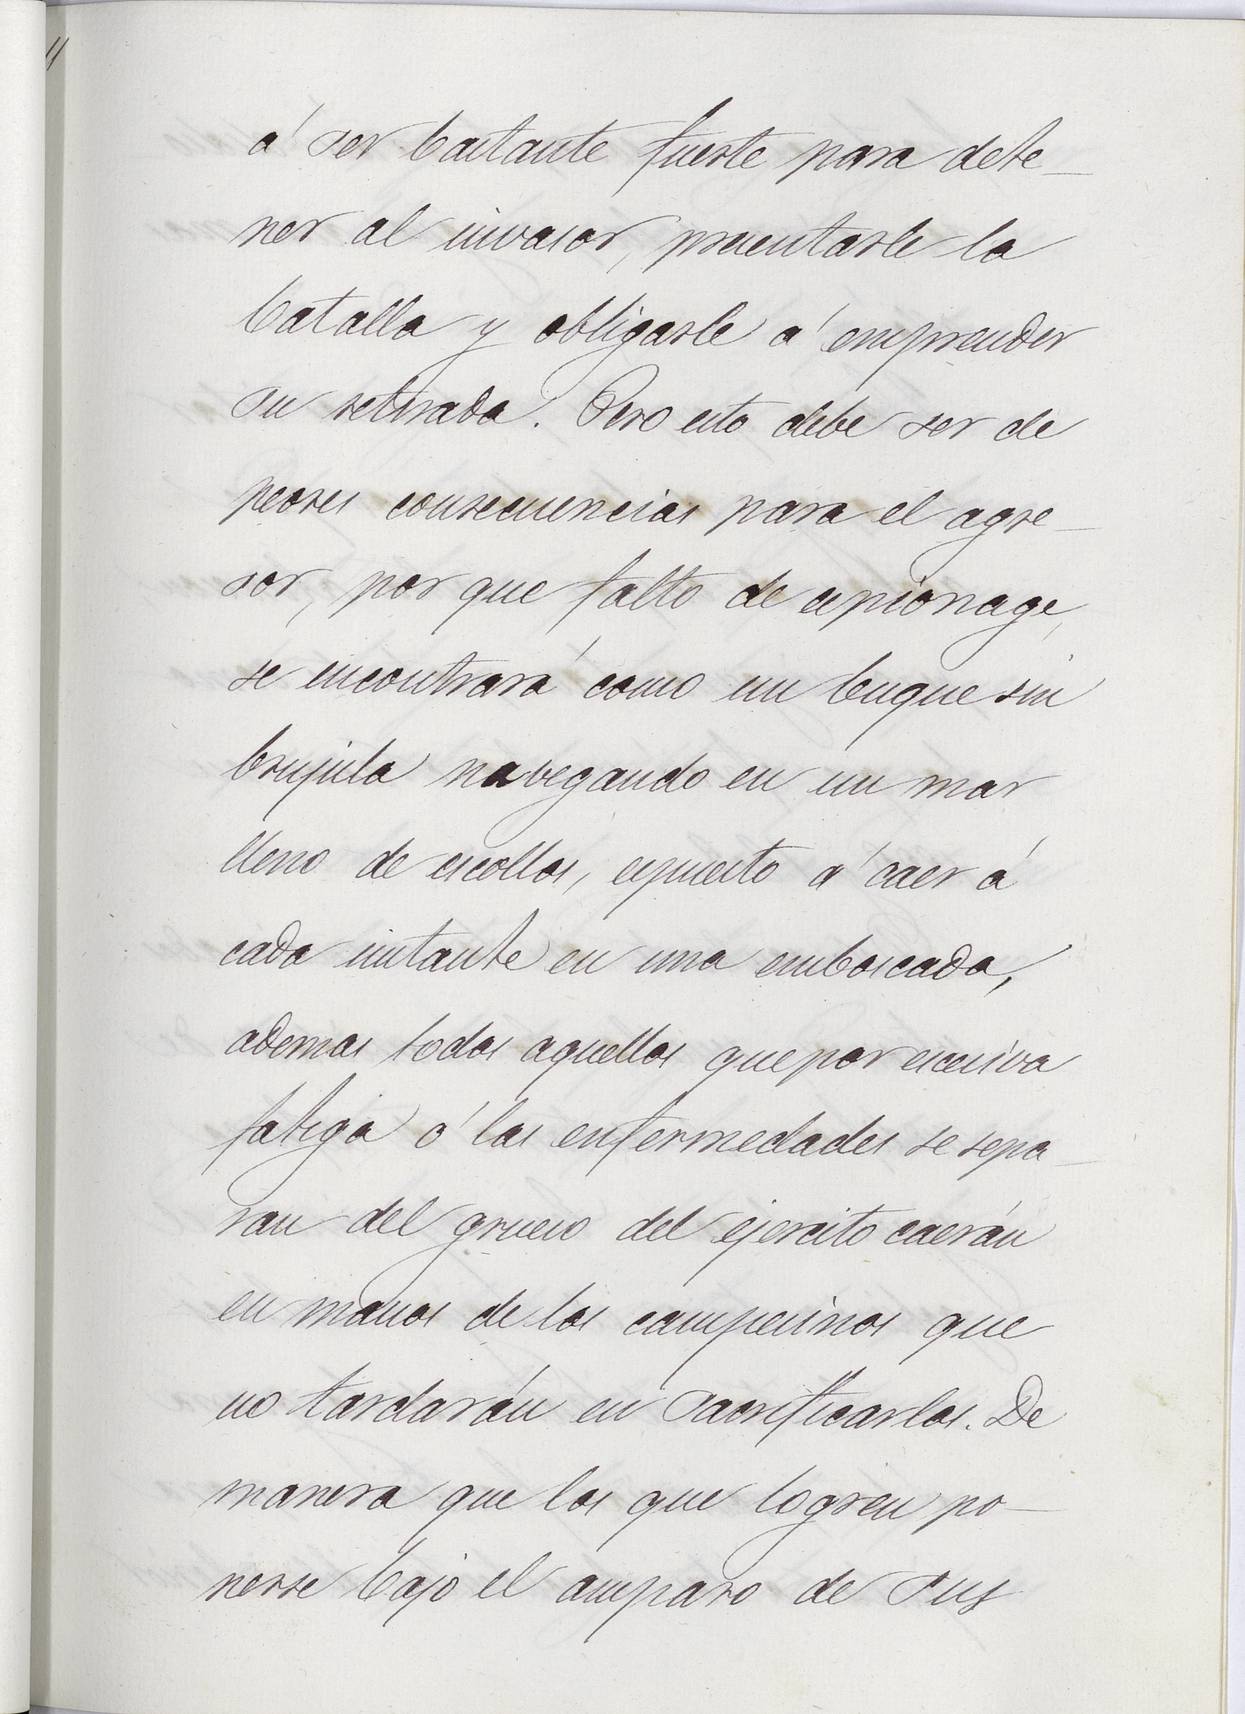 á ser bastante fuerte para dete_
ner al invasor, presentarle la
batalla y obligarle á emprender
su retirada. Pero esto debe ser de
peores consecuencias para el agre_
sor, por que falto de espionage,
se encontrará como un buque sin
brujula navegando en un mar
lleno de escollos, espuesto á caer á
cada instante en una emboscada,
ademas todos aquellos que por escesiva
fatiga ó las enfermedades se sepa_
ran del grueso del ejercito caerán
en manos de los campesinos que
no tardarán en sacrificarlos. De
manera que los que logren po_
nerse bajo el amparo de sus